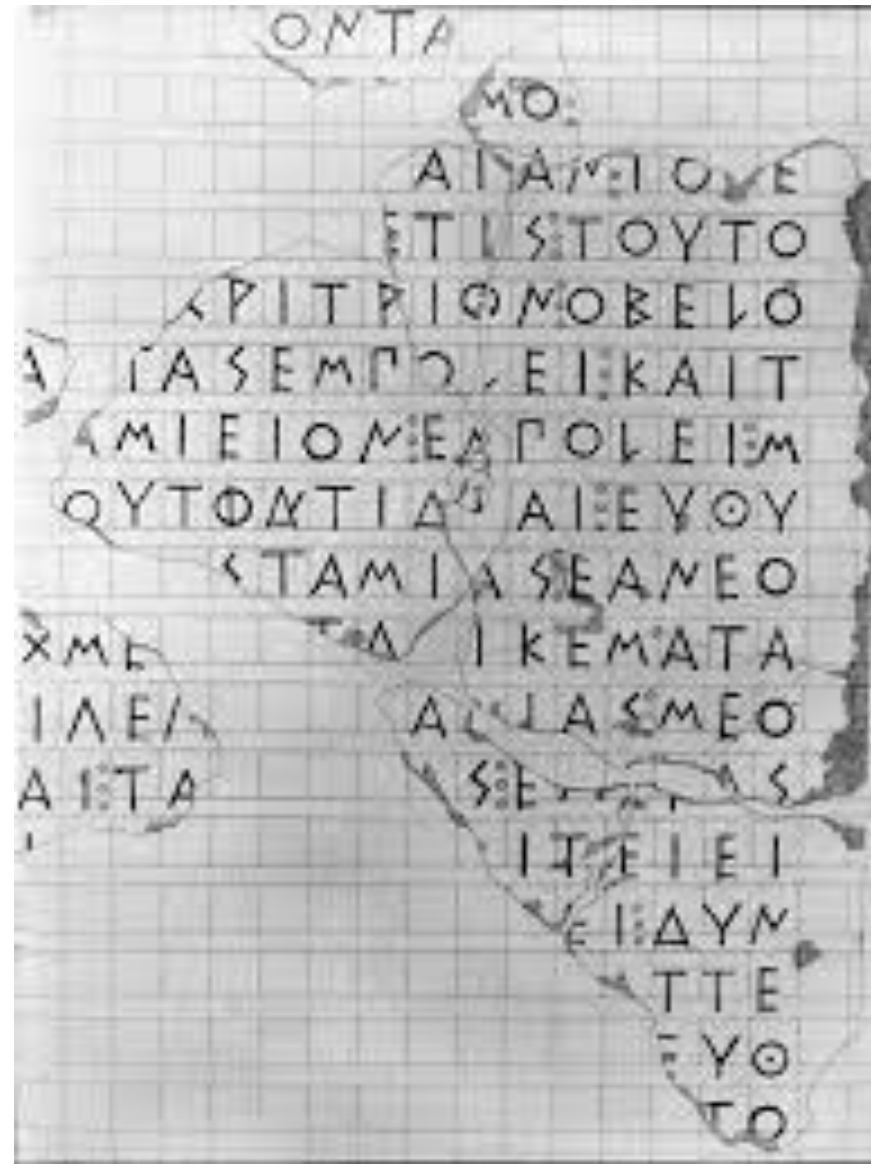 ΟΝΤΑ
ΜΟ⋮
ΑΙΑΜ⋮ΙΟ Ε
ΕΤΙS⋮ΤΟΥΤΟ
ΚΡΙΤΡΙΟΝ⋮ΟΒΕLΟ
Α ΤΑSΕΜΠΟ ΕΙ⋮ΚΑΙΤ
ΑΜΙΕΙΟΝ⋮ΕΜΠΟLΕΙ⋮Μ
ΟΥΤΟΝΤΙΔ ΑΙ⋮ΕΥΘΥ
SΤΑΜΙΑSΕΑΝΕΟ
ΧΜΕ ΤΑ ΙΚΕΜΑΤΑ
ΙΛΕΙ Α ΙΑS⋮ΜΕΟ
ΑΙ⋮ΤΑ S⋮Ε ΑS
ΙΤΕΙΕΙ
ΕΙ⋮ΔΥΝ
ΤΤΕ
⋮ΥΘ
ΤΟ